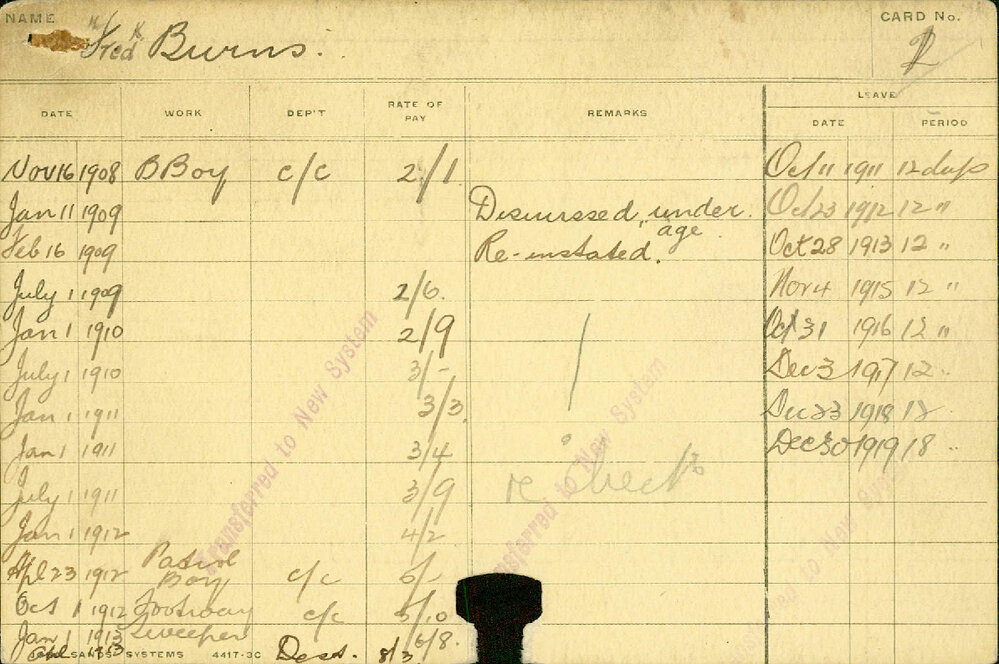 NAME Fredk Burns. CARD No. 2
LEAVE
DATE WORK DEP'T RATE OF PAY REMARKS DATE PERIOD
Nov 16 1908 B Boy c/c 2/1 Oct 11 1911 12 days
Jan 11 1909 Dismissed, under age. Oct 23 1912 12 "
Feb 16 1909 Re-instated. Oct 28 1913 12 "
July 1 1909 2/6. Nov 4 1915 12 "
Jan 1 1910 2/9 Oct 31 1916 12 "
July 1 1910 3/- Dec 3 1917 12 "
Jan 1 1911 3/3. Dec 23 1918 12
Jan 1 1911 3/4 Dec 30 1919 18 "
July 1 1911 3/9
Jan 1 1912 4/2
Apl 23 1912 Patrol Boy c/c 6/-
Oct 1 1912 Footway Sweeper c/c 5/10
Jan 1 1913 6/8.
1913 Dest. 8/3
SANDS SYSTEMS 4417-3C
Transferred to New System
Transferred to New System
to New System